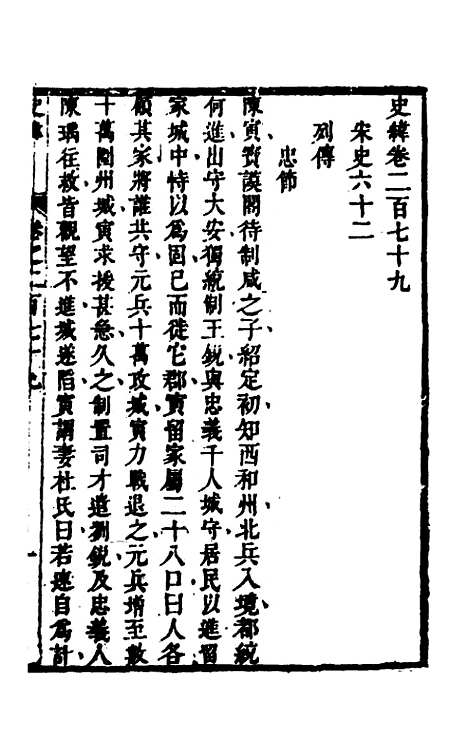 史緯卷二百七十九
宋史六十二
列傳
忠節
陳寅寶謨閣待制咸之子紹定初知西和州北兵入境都統
何進出守大安獨統制王銳與忠義千人城守居民以進留
家城中恃以為固已而徙它郡寅留家屬二十八口曰人各
顧其家將誰共守元兵十萬攻城寅力戰退之元兵增至數
十萬圍州城寅求援甚急久之制置司才遣劉銳及忠義人
陳瑀往救皆觀望不進城遂陷寅謂妻杜氏曰若速自為計
史緯
卷之二百七十九
一